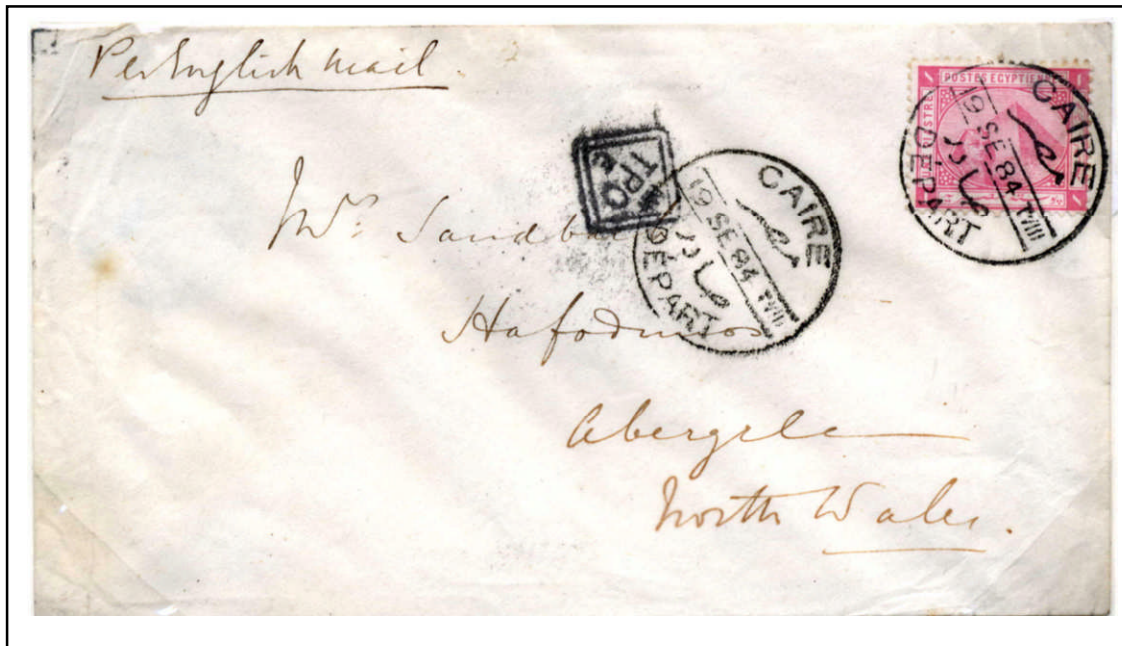 Per English Mail.
POSTES EGYPTIENNES
CAIRE
19 SE 84 TVIII
DÉPART
TPO
CAIRE
19 SE 84 TVIII
DÉPART
Mrs: Sandbach
Hafodunos
Abergele
North Wales.